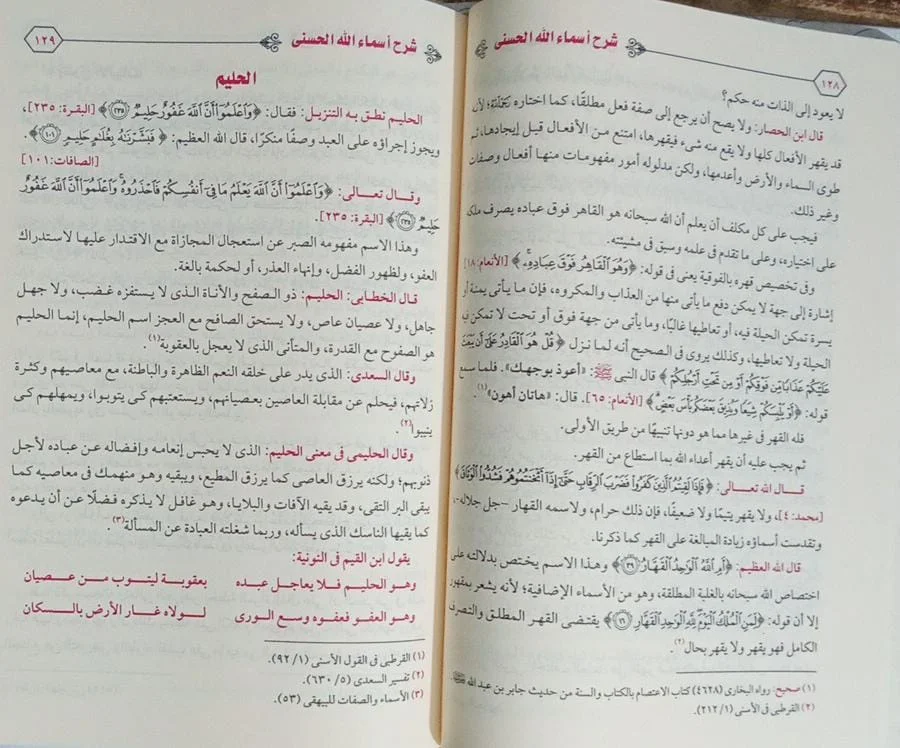 شرح أسماء الله الحسنى
١٢٨
لا يعود إلى الذات منه حكم؟
قال ابن الحصار: ولا يصح أن يرجع إلى صفة فعل مطلقًا، كما اختاره رحمه الله؛ لأن
قد يقهر الأفعال كلها ولا يقع منه شىء فيقهرها، امتنع من الأفعال قبل إيجادها، ثم
طوى السماء والأرض وأعدمها، ولكن مدلوله أمور مفهومات منها أفعال وصفات
وغير ذلك.
فيجب على كل مكلف أن يعلم أن الله سبحانه هو القاهر فوق عباده يصرف ملكه
على اختياره، وعلى ما تقدم فى علمه وسبق فى مشيئته.
وفى تخصيص قهره بالفوقية يعنى فى قوله: ﴿وَهُوَ الْقَاهِرُ فَوْقَ عِبَادِهِ﴾ [الأنعام: ١٨]
إشارة إلى جهة لا يمكن دفع ما يأتى منها من العذاب والمكروه، فإن ما يأتى يمنة أو
يسرة تمكن الحيلة فيه، أو تعاطيها غالبًا، وما يأتى من جهة فوق أو تحت لا تمكن فيه
الحيلة ولا تعاطيها، وكذلك يروى فى الصحيح أنه لما نزل ﴿قُلْ هُوَ الْقَادِرُ عَلَىٰ أَن يَبْعَثَ
عَلَيْكُمْ عَذَابًا مِّن فَوْقِكُمْ أَوْ مِن تَحْتِ أَرْجُلِكُمْ﴾ قال النبى ﷺ: «أعوذ بوجهك». فلما سمع
قوله: ﴿أَوْ يَلْبِسَكُمْ شِيَعًا وَيُذِيقَ بَعْضَكُم بَأْسَ بَعْضٍ﴾ [الأنعام: ٦٥]. قال: «هاتان أهون»(١).
فله القهر فى غيرها مما هو دونها تنبيهًا من طريق الأولى.
ثم يجب عليه أن يقهر أعداء الله بما استطاع من القهر.
قال الله تعالى: ﴿فَإِذَا لَقِيتُمُ الَّذِينَ كَفَرُوا فَضَرْبَ الرِّقَابِ حَتَّىٰ إِذَا أَثْخَنتُمُوهُمْ فَشُدُّوا الْوَثَاقَ﴾
[محمد: ٤]، ولا يقهر يتيمًا ولا ضعيفًا، فإن ذلك حرام، ولاسمه القهار -جل جلاله-،
وتقدست أسماؤه زيادة المبالغة على القهر كما ذكرنا.
قال الله العظيم: ﴿أَمِ اللَّهُ الْوَاحِدُ الْقَهَّارُ ﴿٣٩﴾﴾ وهذا الاسم يختص بدلالته على
اختصاص الله سبحانه بالغلبة المطلقة، وهو من الأسماء الإضافية؛ لأنه يشعر بمقهور
إلا أن قوله: ﴿لِّمَنِ الْمُلْكُ الْيَوْمَ لِلَّهِ الْوَاحِدِ الْقَهَّارِ ﴿١٦﴾﴾ يقتضى القهر المطلق والتصرف
الكامل فهو يقهر ولا يقهر بحال(٢).
(١) صحيح: رواه البخارى (٤٦٢٨) كتاب الاعتصام بالكتاب والسنة من حديث جابر بن عبد الله
(٢) القرطبى فى الأسنى (٢١٢/١).
شرح أسماء الله الحسنى
١٢٩
الحليم
الحليم نطق به التنزيل: فقال: ﴿وَاعْلَمُوا أَنَّ اللَّهَ غَفُورٌ حَلِيمٌ ﴿٢٣٥﴾﴾ [البقرة: ٢٣٥]،
ويجوز إجراؤه على العبد وصفًا منكرًا، قال الله العظيم: ﴿فَبَشَّرْنَاهُ بِغُلَامٍ حَلِيمٍ ﴿١٠١﴾﴾.
[الصافات: ١٠١]
وقال تعالى: ﴿وَاعْلَمُوا أَنَّ اللَّهَ يَعْلَمُ مَا فِي أَنفُسِكُمْ فَاحْذَرُوهُ وَاعْلَمُوا أَنَّ اللَّهَ غَفُورٌ
حَلِيمٌ ﴿٢٣٥﴾﴾ [البقرة: ٢٣٥].
وهذا الاسم مفهومه الصبر عن استعجال المجازاة مع الاقتدار عليها لاستدراك
العفو، ولظهور الفضل، وإنهاء العذر، أو لحكمة بالغة.
قال الخطابى: الحليم: ذو الصفح والأناة الذى لا يستفزه غضب، ولا جهل
جاهل، ولا عصيان عاص، ولا يستحق الصافح مع العجز اسم الحليم، إنما الحليم
هو الصفوح مع القدرة، والمتأنى الذى لا يعجل بالعقوبة(١).
وقال السعدى: الذى يدر على خلقه النعم الظاهرة والباطنة، مع معاصيهم وكثرة
زلاتهم، فيحلم عن مقابلة العاصين بعصيانهم، ويستعتبهم كى يتوبوا، ويمهلهم كى
ينيبوا(٢).
وقال الحليمى فى معنى الحليم: الذى لا يحبس إنعامه وإفضاله عن عباده لأجل
ذنوبهم؛ ولكنه يرزق العاصى كما يرزق المطيع، ويبقيه وهو منهمك فى معاصيه كما
يبقى البر التقى، وقد يقيه الآفات والبلايا، وهو غافل لا يذكره فضلًا عن أن يدعوه
كما يقيها الناسك الذى يسأله، وربما شغلته العبادة عن المسألة(٣).
يقول ابن القيم فى النونية:
وهو الحليم فلا يعاجل عبده بعقوبة ليتوب من عصيان
وهو العفو فعفوه وسع الورى لولاه غار الأرض بالسكان
(١) القرطبى فى القول الأسنى (٩٢/١).
(٢) تفسير السعدى (٦٣٠/٥).
(٣) الأسماء والصفات للبيهقى (٥٣).